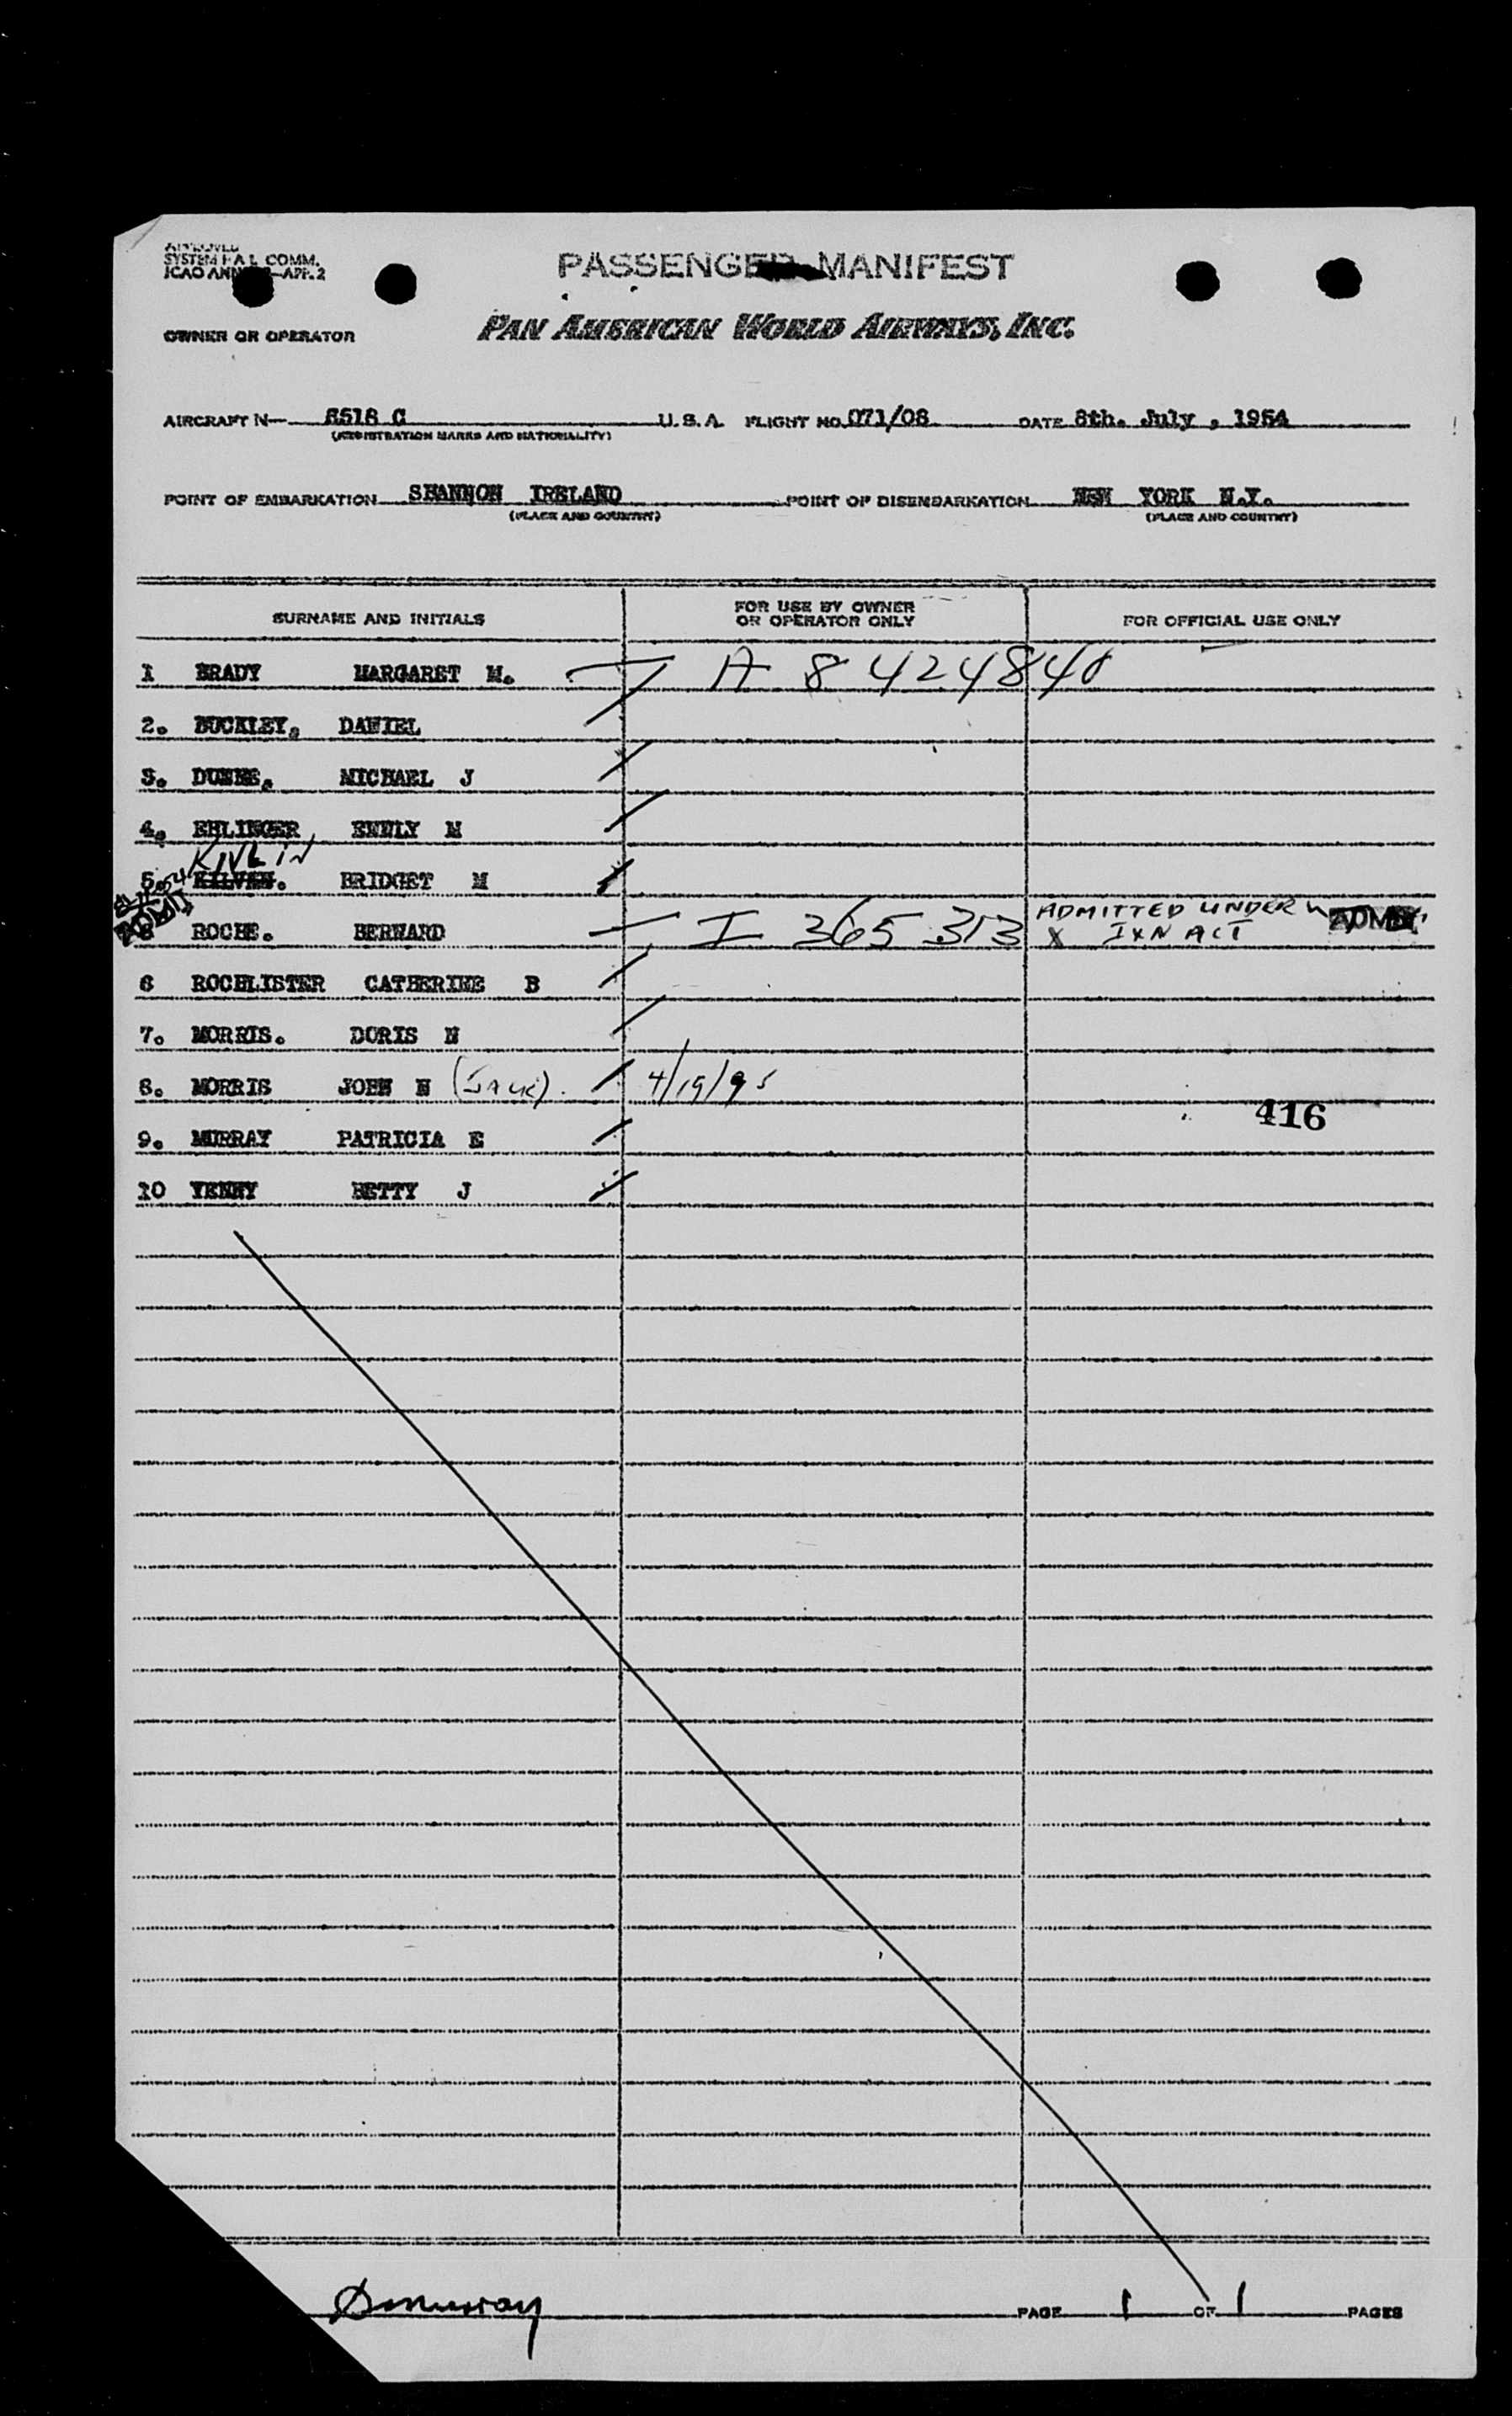 APPROVED
SYSTEM F A L COMM.
ICAO ANN —APP. 2
PASSENGER MANIFEST
OWNER OR OPERATOR PAN AMERICAN WORLD AIRWAYS, INC.
AIRCRAFT N— 6518 C U.S.A. FLIGHT NO. 071/08 DATE 8th. July , 1954
(REGISTRATION MARKS AND NATIONALITY)
POINT OF EMBARKATION SHANNON IRELAND POINT OF DISEMBARKATION NEW YORK N.Y.
(PLACE AND COUNTRY) (PLACE AND COUNTRY)
SURNAME AND INITIALS FOR USE BY OWNER OR OPERATOR ONLY FOR OFFICIAL USE ONLY
1 BRADY MARGARET M. A 8 424840
2. BUCKLEY. DANIEL
3. DUNNE. MICHAEL J
4. EHLINGER EMILY M
KIVLIN
5. KILVEN. BRIDGET M
ROCHE. BERNARD I 365 313 ADMITTED UNDER
X I&N ACT
6 ROCHLISTER CATHERINE B
7. MORRIS. DORIS N
8. MORRIS JOHN N (Jack). 4/19/95
416
9. MURRAY PATRICIA E
10 YENNY BETTY J
PAGE 1 OF 1 PAGES